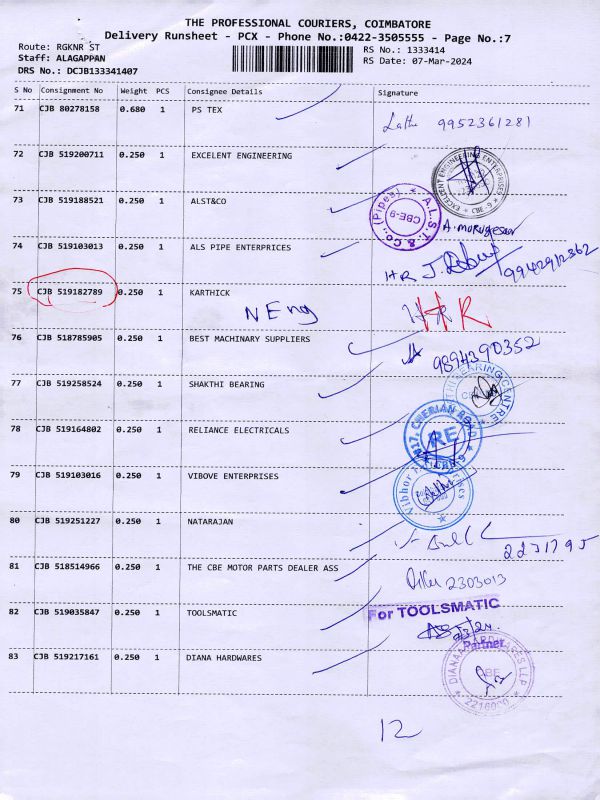 THE PROFESSIONAL COURIERS, COIMBATORE
Delivery Runsheet - PCX - Phone No.:0422-3505555 - Page No.:7
Route: RGKNR ST
RS No.: 1333414
Staff: ALAGAPPAN
RS Date: 07-Mar-2024
DRS No.: DCJB133341407
S No Consignment No Weight PCS Consignee Details Signature
71 CJB 80278158 0.680 1 PS TEX
Latha 9952361281
72 CJB 519200711 0.250 1 EXCELENT ENGINEERING
EXCELLENT ENGINEERING ENTERPRISES
73 CJB 519188521 0.250 1 ALST&CO
A.L.S.T. & Co., (Pipes) CBE-9
A. Murugesan
74 CJB 519103013 0.250 1 ALS PIPE ENTERPRICES
HR J. 9942912362
75 CJB 519182789 0.250 1 KARTHICK
N Eng
HR
76 CJB 518785905 0.250 1 BEST MACHINARY SUPPLIERS
9894390352
77 CJB 519258524 0.250 1 SHAKTHI BEARING
BEARING CENTRE
78 CJB 519164802 0.250 1 RELIANCE ELECTRICALS
RE
79 CJB 519103016 0.250 1 VIBOVE ENTERPRISES
80 CJB 519251227 0.250 1 NATARAJAN
2231795
81 CJB 518514966 0.250 1 THE CBE MOTOR PARTS DEALER ASS
2303013
82 CJB 519035847 0.250 1 TOOLSMATIC
For TOOLSMATIC
Partner
83 CJB 519217161 0.250 1 DIANA HARDWARES
DIANA HARDWARES LLP
CBE
12